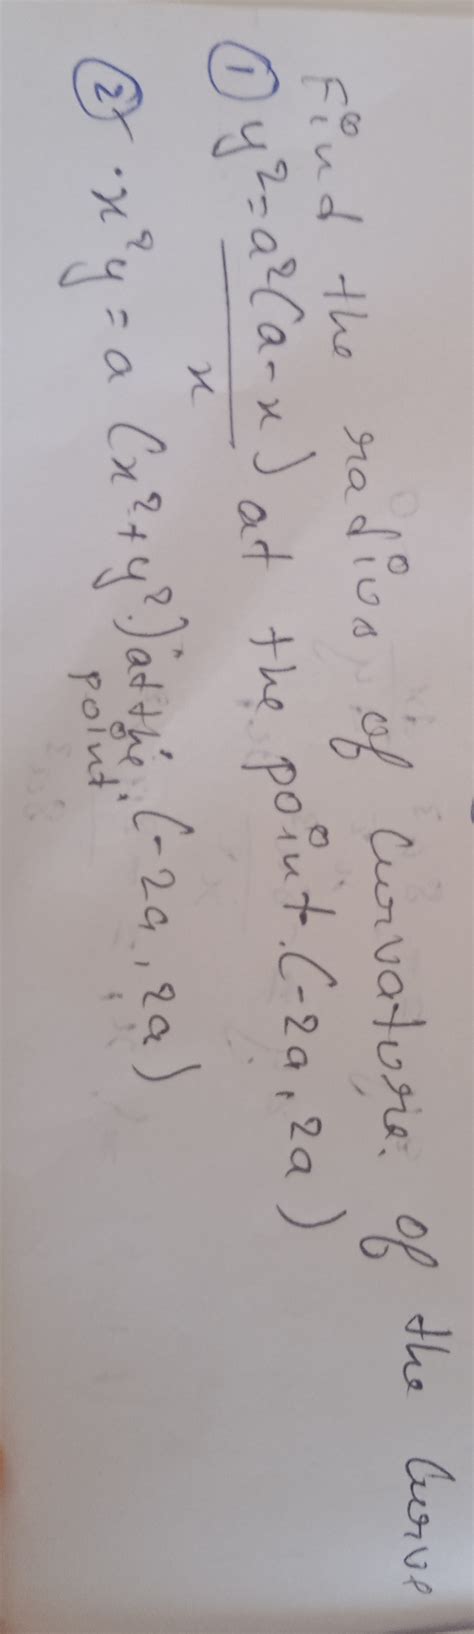 Find the radius of curvature of the curve
① y² = a²(a-x) at the point (-2a, 2a)
x
② x²y = a (x²+y²) at the (-2a, 2a)
point